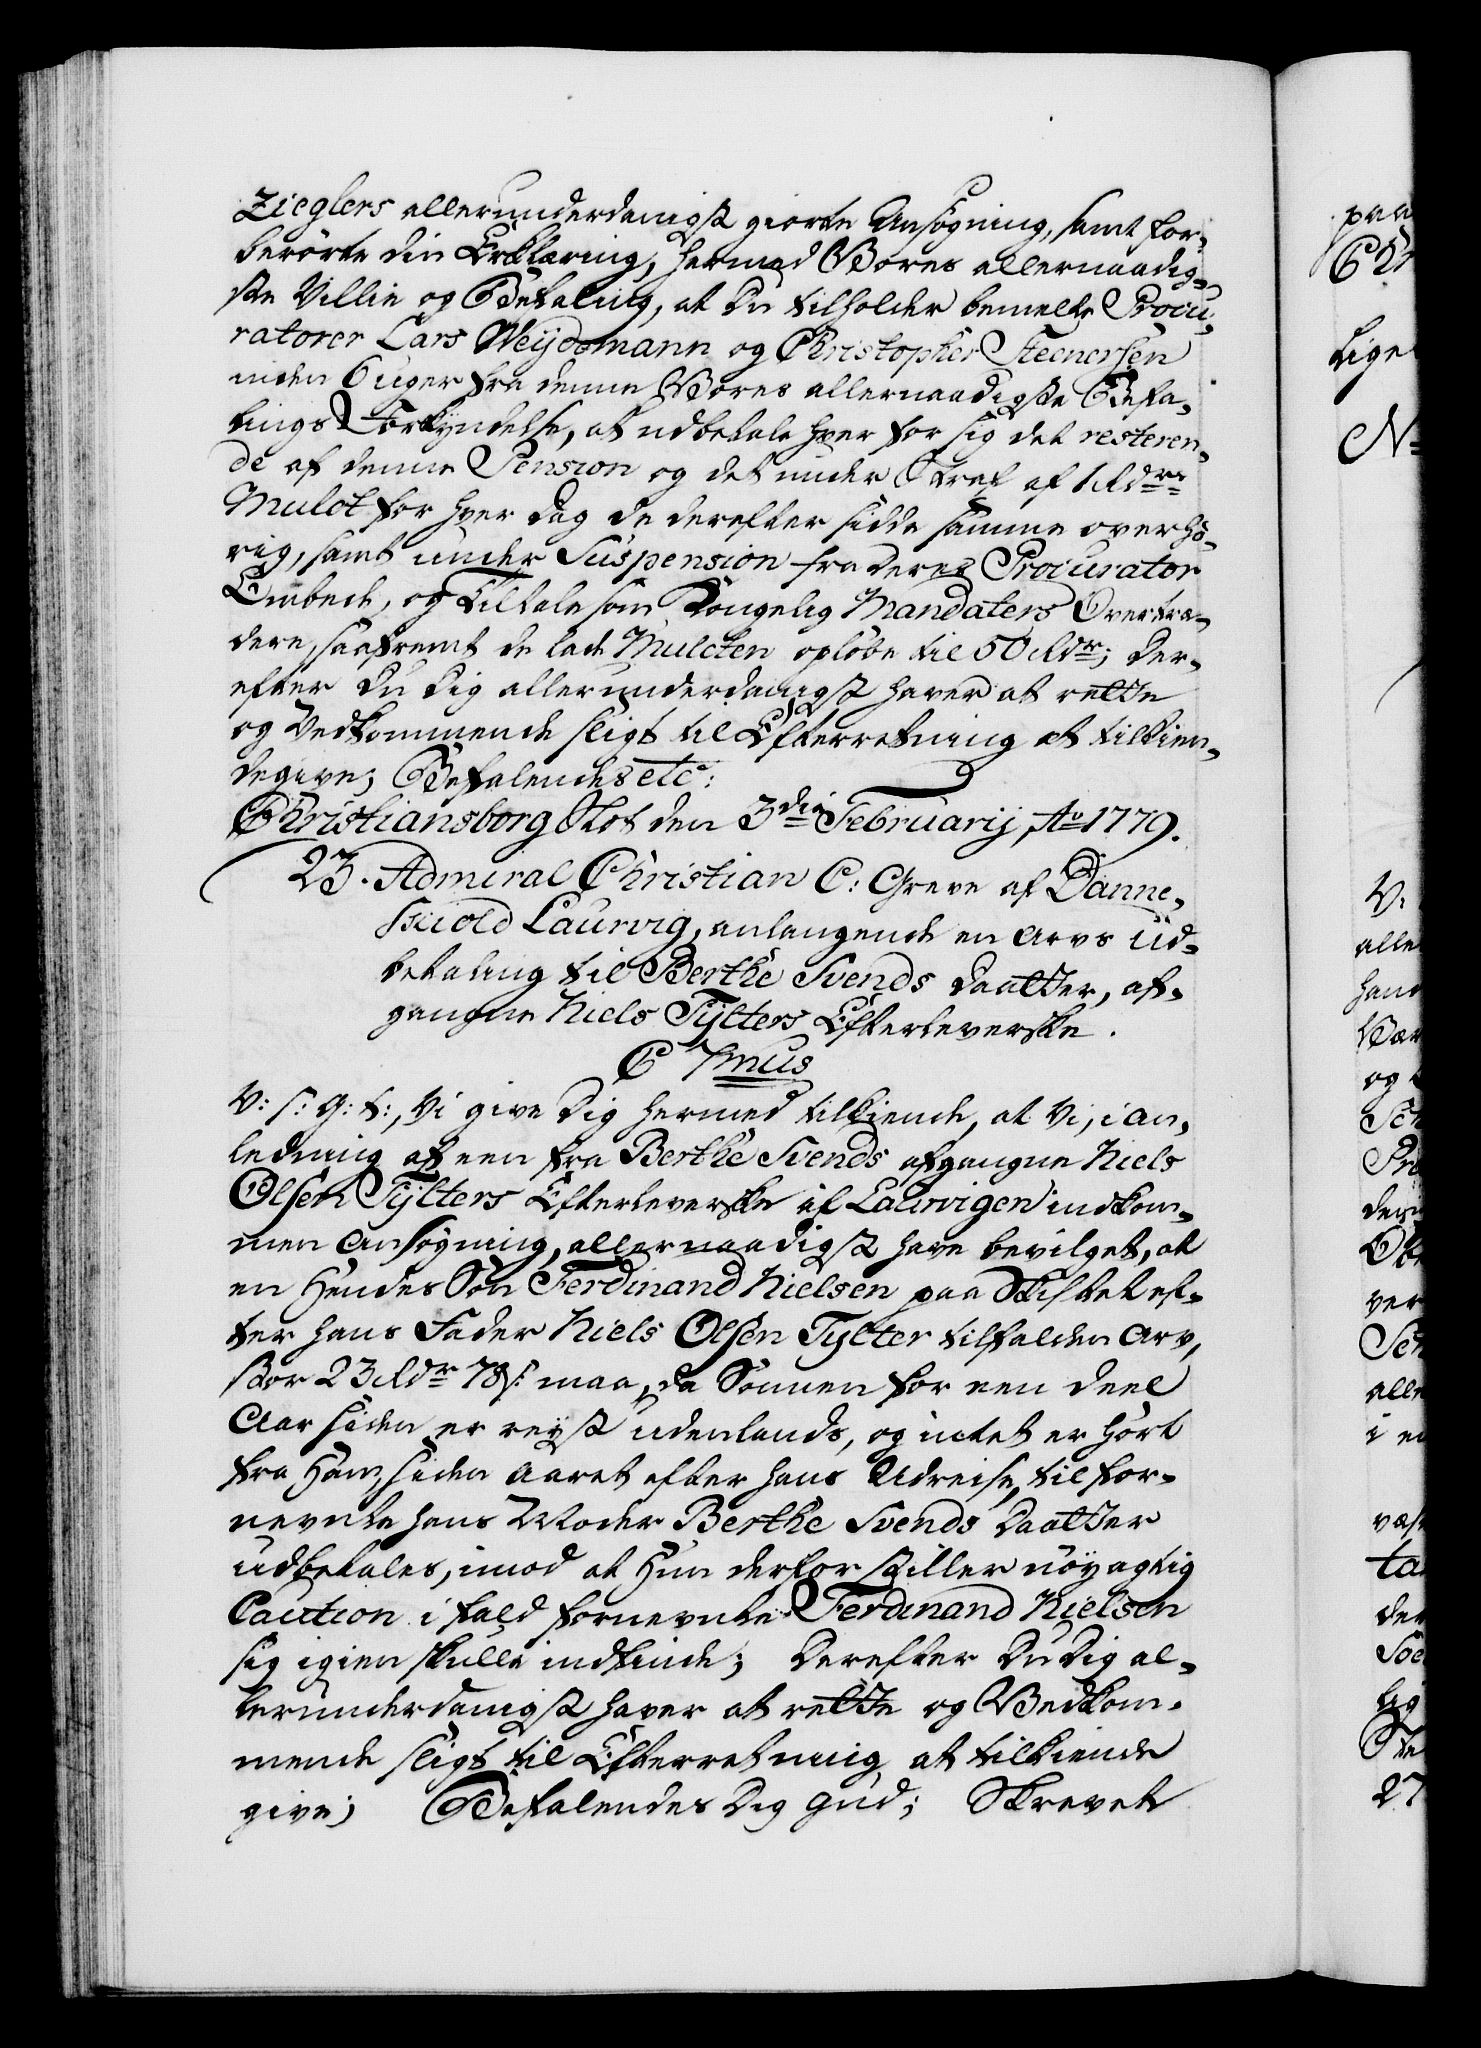 Zieglers allerunderdanigst giorte Ansøgning, samt for-
berørte din Erklæring, hermed Vores allernaadig-
ste Villie og Befaling, at Du tilholder bemelte Procu-
ratorer Lars Weydemann og Christopher Steenersen
inden 6 uger fra denne Vores allernaadigste Befa-
lings Forkyndelse, at udbetale hver for sig det resteren-
de af denne Pension og det under Straf af 1 Rdrs
Mulct for hver Dag de derefter sidde samme overhö-
rig, samt under Suspension fra deres Procurator
Embede, og Tiltale som Kongelig Mandaters Overtræ-
dere, saafremt de lade Mulcten opløbe til 50 Rdr; Der-
efter Du Dig allerunderdanigst haver at rette
og Vedkommende sligt til Efterretning at tilkien-
degive; Befalendes etc:
Christiansborg Slot den 3die Februarij Ao 1779.
23. Admiral Christian C: Greve af Danne-
skiold Laurvig, anlangende en Arvs Ud-
betaling til Berthe Svends Daatter, af-
gangne Niels Tÿlters Efterleverske.
C 7mus
V: s: G: t:, Vi give Dig hermed tilkiende, at Vi, i an-
ledning af een fra Berthe Svends afgangne Niels
Olsen Tÿlters Efterleverske af Laurvigen indkom-
men Ansögning, allernaadigst have bevilget, at
en Hendes Søn Ferdinand Nielsen paa Skiftet ef-
ter hans Fader Niels Olsen Tylter tilfalden Arv,
stor 23 Rdr 78 s: maa, da Sönnen for een deel
Aar siden er reyst udenlands, og intet er hört
fra Ham, siden Aaret efter hans Udreise, til for-
nevnte hans Moder Berthe Svends Daatter
udbetales, imod at Hun derfor stiller nöyagtig
Caution i fald fornevnte Ferdinand Nielsen
sig igien skulle indfinde; Derefter Du Dig al-
lerunderdanigst haver at rette og Vedkom-
mende sligt til Efterretning at tilkiende
give; Befalendes Dig Gud; Skrevet